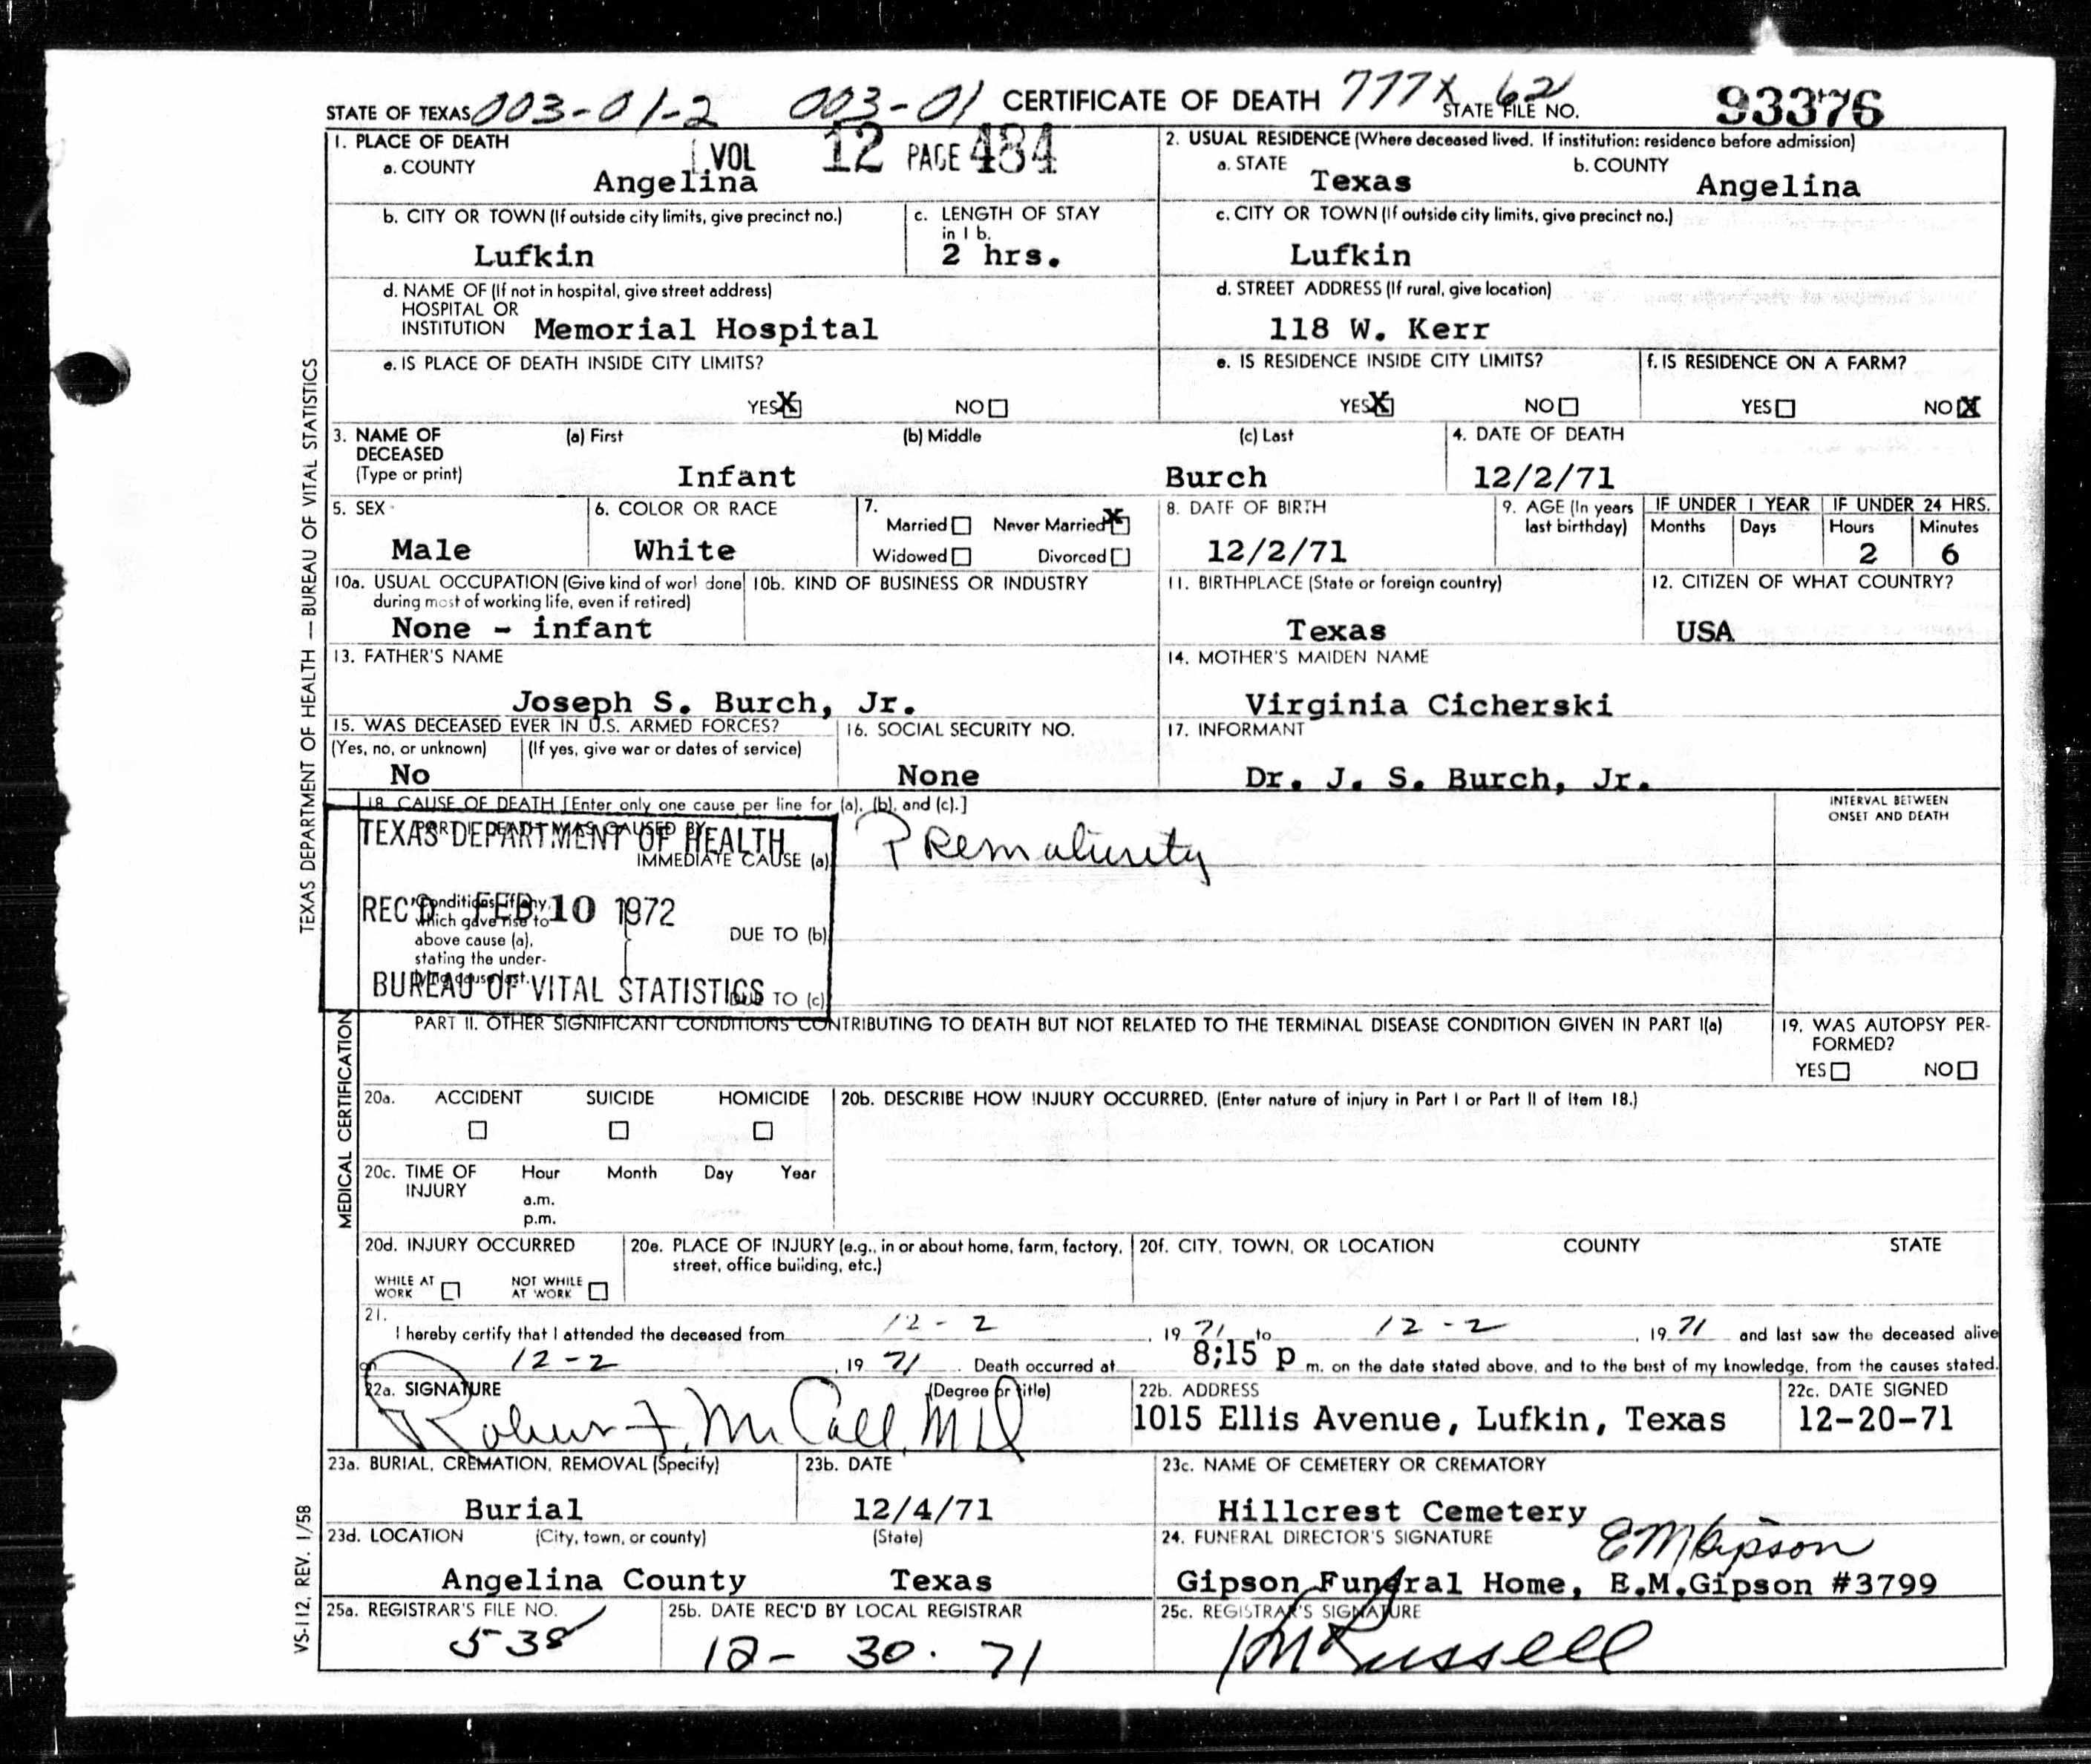 STATE OF TEXAS 003-01-2 003-01 CERTIFICATE OF DEATH 777X 62 STATE FILE NO. 93376
1. PLACE OF DEATH
a. COUNTY
Angelina
VOL 12 PAGE 484
2. USUAL RESIDENCE (Where deceased lived. If institution: residence before admission)
a. STATE
Texas
b. COUNTY
Angelina
b. CITY OR TOWN (If outside city limits, give precinct no.)
Lufkin
c. LENGTH OF STAY
in 1 b.
2 hrs.
c. CITY OR TOWN (If outside city limits, give precinct no.)
Lufkin
d. NAME OF (If not in hospital, give street address)
HOSPITAL OR
INSTITUTION Memorial Hospital
d. STREET ADDRESS (If rural, give location)
118 W. Kerr
e. IS PLACE OF DEATH INSIDE CITY LIMITS?
YES X NO
e. IS RESIDENCE INSIDE CITY LIMITS?
YES X NO
f. IS RESIDENCE ON A FARM?
YES NO X
3. NAME OF
DECEASED
(Type or print)
(a) First (b) Middle (c) Last
Infant Burch
4. DATE OF DEATH
12/2/71
5. SEX
Male
6. COLOR OR RACE
White
7.
Married Never Married X
Widowed Divorced
8. DATE OF BIRTH
12/2/71
9. AGE (In years
last birthday)
IF UNDER 1 YEAR
Months Days
IF UNDER 24 HRS.
Hours Minutes
2 6
10a. USUAL OCCUPATION (Give kind of work done
during most of working life, even if retired)
None - infant
10b. KIND OF BUSINESS OR INDUSTRY
11. BIRTHPLACE (State or foreign country)
Texas
12. CITIZEN OF WHAT COUNTRY?
USA
13. FATHER'S NAME
Joseph S. Burch, Jr.
14. MOTHER'S MAIDEN NAME
Virginia Cicherski
15. WAS DECEASED EVER IN U.S. ARMED FORCES?
(Yes, no, or unknown) (If yes, give war or dates of service)
No
16. SOCIAL SECURITY NO.
None
17. INFORMANT
Dr. J. S. Burch, Jr.
18. CAUSE OF DEATH [Enter only one cause per line for (a), (b), and (c).]
PART I. DEATH WAS CAUSED BY:
IMMEDIATE CAUSE (a) Prematurity
INTERVAL BETWEEN
ONSET AND DEATH
TEXAS DEPARTMENT OF HEALTH
REC'D FEB 10 1972
BUREAU OF VITAL STATISTICS
Conditions, if any,
which gave rise to
above cause (a),
stating the under-
lying cause last.
DUE TO (b)
DUE TO (c)
PART II. OTHER SIGNIFICANT CONDITIONS CONTRIBUTING TO DEATH BUT NOT RELATED TO THE TERMINAL DISEASE CONDITION GIVEN IN PART I(a)
19. WAS AUTOPSY PER-
FORMED?
YES NO
20a. ACCIDENT SUICIDE HOMICIDE
20b. DESCRIBE HOW INJURY OCCURRED. (Enter nature of injury in Part I or Part II of Item 18.)
20c. TIME OF
INJURY
Hour Month Day Year
a.m.
p.m.
20d. INJURY OCCURRED
WHILE AT
WORK
NOT WHILE
AT WORK
20e. PLACE OF INJURY (e.g., in or about home, farm, factory,
street, office building, etc.)
20f. CITY, TOWN, OR LOCATION COUNTY STATE
21.
I hereby certify that I attended the deceased from 12-2, 1971 to 12-2, 1971 and last saw the deceased alive
on 12-2, 1971. Death occurred at 8;15 p m. on the date stated above, and to the best of my knowledge, from the causes stated.
22a. SIGNATURE (Degree or title)
Robert F. McCall, MD
22b. ADDRESS
1015 Ellis Avenue, Lufkin, Texas
22c. DATE SIGNED
12-20-71
23a. BURIAL, CREMATION, REMOVAL (Specify)
Burial
23b. DATE
12/4/71
23c. NAME OF CEMETERY OR CREMATORY
Hillcrest Cemetery
23d. LOCATION (City, town, or county) (State)
Angelina County Texas
24. FUNERAL DIRECTOR'S SIGNATURE
EM Gipson
Gipson Funeral Home, E.M.Gipson #3799
25a. REGISTRAR'S FILE NO.
538
25b. DATE REC'D BY LOCAL REGISTRAR
12-30-71
25c. REGISTRAR'S SIGNATURE
Russell
TEXAS DEPARTMENT OF HEALTH — BUREAU OF VITAL STATISTICS
MEDICAL CERTIFICATION
VS-112, REV. 1/58